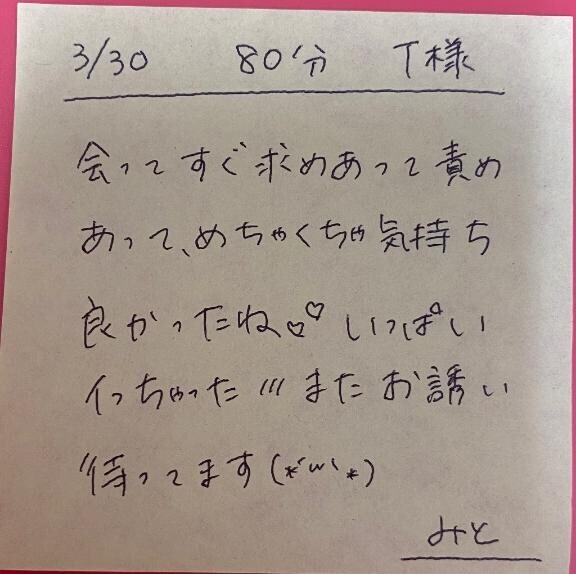 3/30 80分 T様
会ってすぐ求めあって責め
あって、めちゃくちゃ気持ち
良かったね♡♡ いっぱい
イっちゃった/// またお誘い
待ってます(*´ω`*)
みと